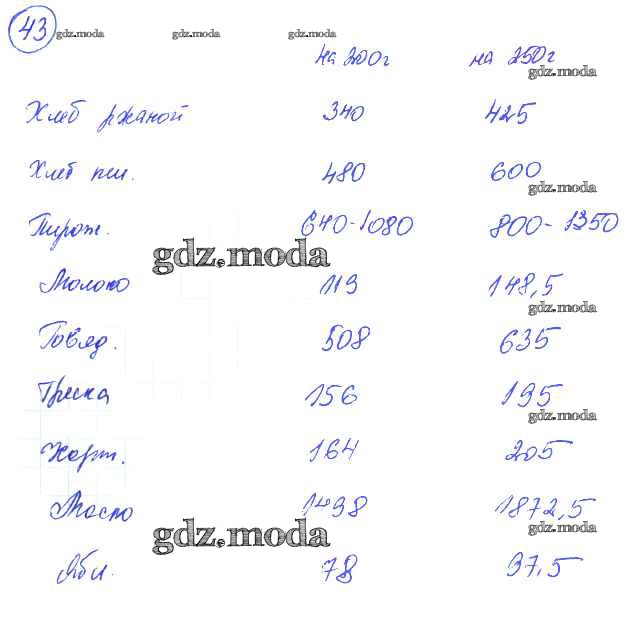 43 gdz.moda gdz.moda gdz.moda
на 200г на 250г
gdz.moda
Хлеб ржаной 340 425
Хлеб пш. 480 600
gdz.moda
Пирож. 640-1080 800-1350
gdz.moda
Молоко 119 148,5
gdz.moda
Говяд. 508 635
Треска 156 195
gdz.moda
Карт. 164 205
Масло 1498 1872,5
gdz.moda gdz.moda
Ябл. 78 97,5